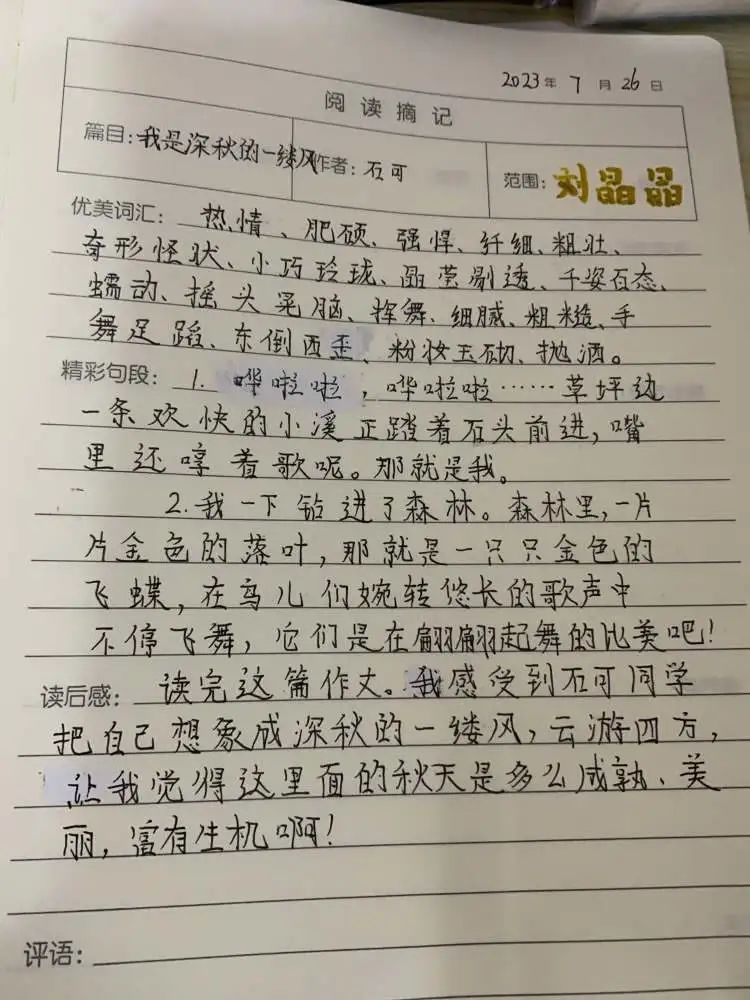 2023年 7 月 26 日
阅读摘记
篇目:我是深秋的一缕风 作者:石可 范围:刘晶晶
优美词汇: 热情、肥硕、强悍、纤细、粗壮、
奇形怪状、小巧玲珑、晶莹剔透、千姿百态、
蠕动、摇头晃脑、挥舞、细腻、粗糙、手
舞足蹈、东倒西歪、粉妆玉砌、抛洒。
精彩句段: 1. 哗啦啦,哗啦啦……草坪边
一条欢快的小溪正踏着石头前进,嘴
里还哼着歌呢。那就是我。
2.我一下钻进了森林。森林里,一片
片金色的落叶,那就是一只只金色的
飞蝶,在鸟儿们婉转悠长的歌声中
不停飞舞,它们是在翩翩起舞的比美吧!
读后感: 读完这篇作文。我感受到石可同学
把自己想象成深秋的一缕风,云游四方,
让我觉得这里面的秋天是多么成熟、美
丽,富有生机啊!
评语: